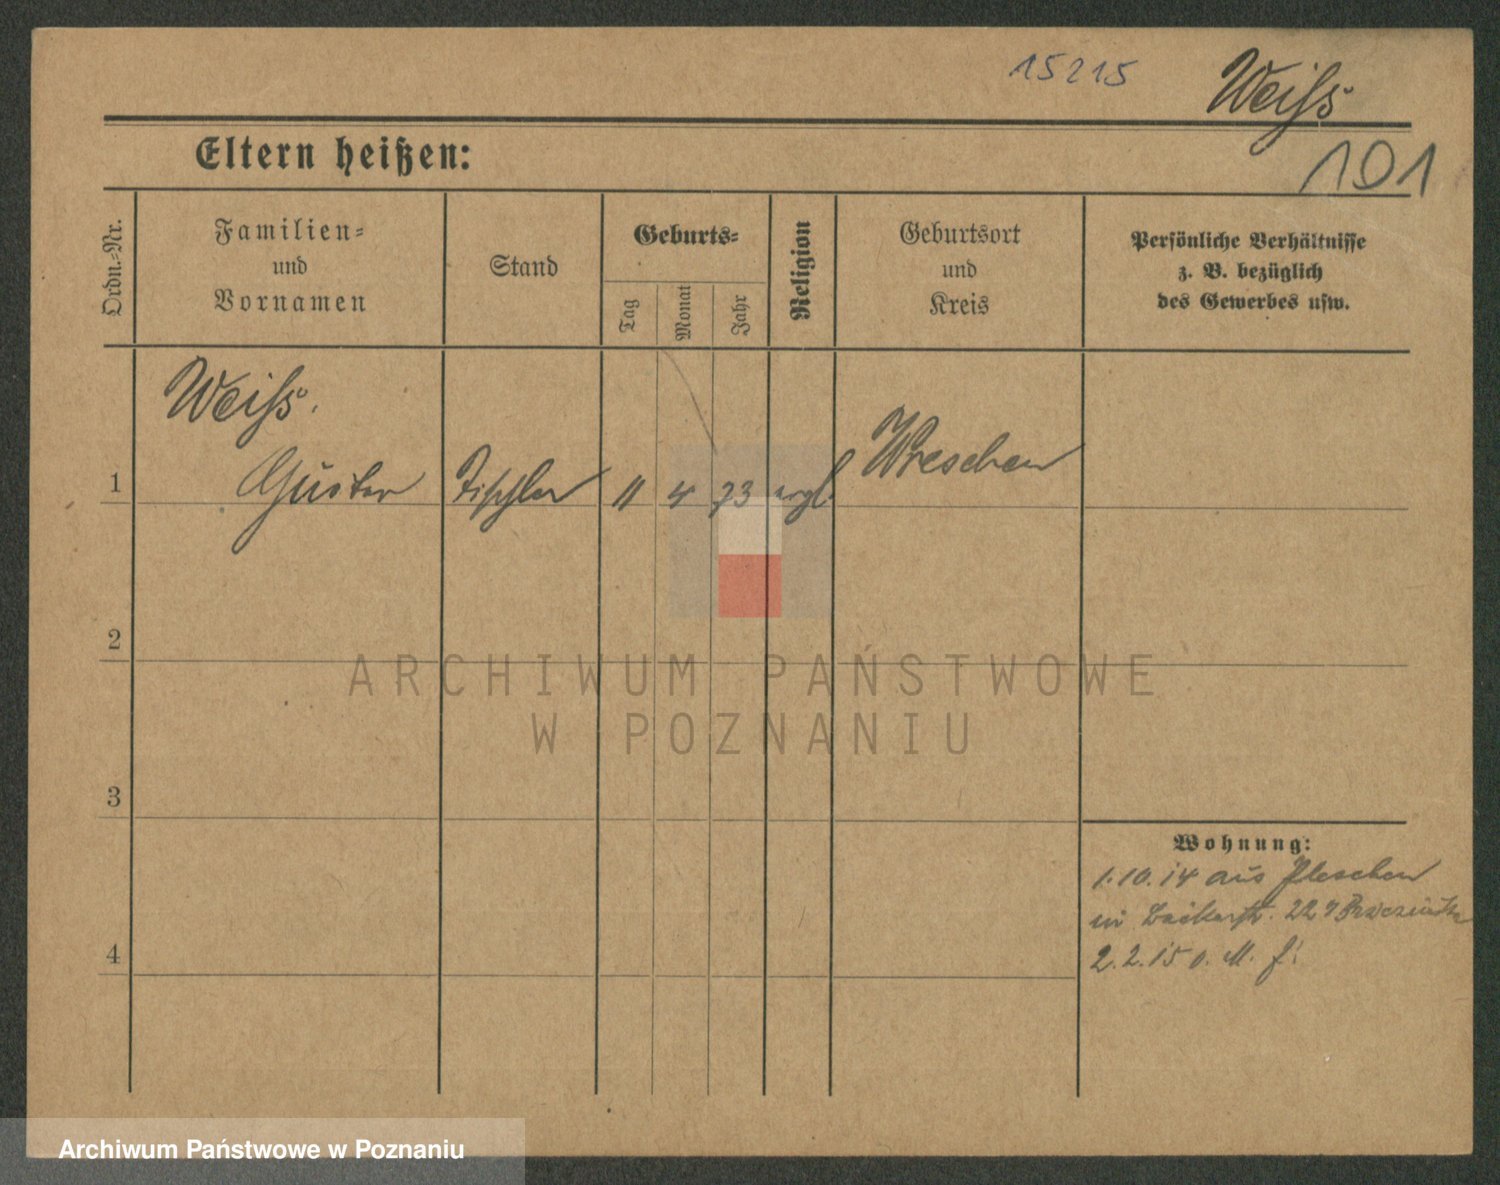 15215
Weiſs
191
Eltern heißen:
Ordn.-Nr.
Familien-
und
Vornamen
Stand
Geburts-
Tag
Monat
Jahr
Religion
Geburtsort
und
Kreis
Persönliche Verhältnisse
z. B. bezüglich
des Gewerbes usw.
Weiſs.
1 Gustav Tischler 11 4 73 evgl. Wreschen
2
3
4
Wohnung:
1.10.14 aus Pleschen
in 22
2.2.15 o. M. f.
ARCHIWUM PAŃSTWOWE
W POZNANIU
Archiwum Państwowe w Poznaniu